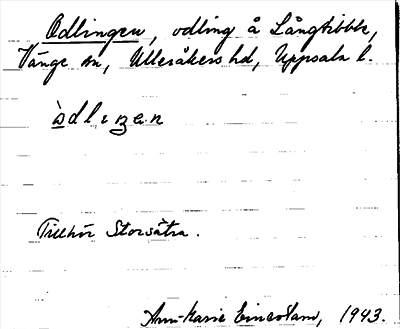 Odlingen, odling å Långtibble,
Vänge sn, Ulleråkers hd, Uppsala l.
Tillhör Storsätra.
Ann-Marie 1943.